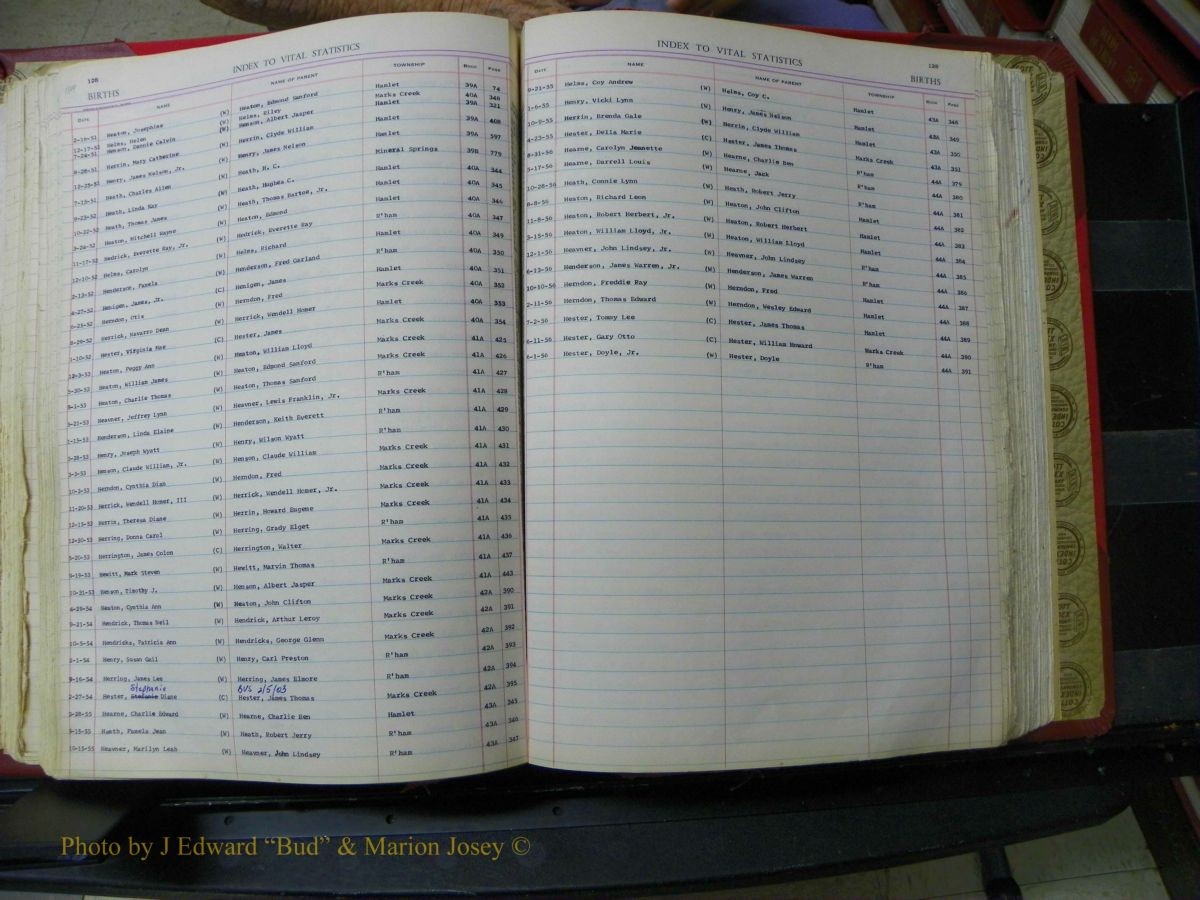 128
INDEX TO VITAL STATISTICS
BIRTHS
DATE NAME NAME OF PARENT TOWNSHIP BOOK PAGE
2-19-51 Heaton, Josephine (W) Heaton, Edmond Sanford Hamlet 39A 74
12-17-51 Helms, Helen (W) Helms, Elley Marks Creek 40A 348
7-24-51 Henson, Dannie Calvin (W) Henson, Albert Jasper Hamlet 39A 321
8-28-51 Herrin, Mary Catherine (W) Herrin, Clyde William Hamlet 39A 408
12-25-51 Henry, James Nelson, Jr. (W) Henry, James Nelson Hamlet 39A 597
7-19-51 Heath, Charles Allen (W) Heath, H. C. Mineral Springs 39B 779
9-23-52 Heath, Linda Kay (W) Heath, Hughes C. Hamlet 40A 344
10-22-52 Heath, Thomas James (W) Heath, Thomas Barton, Jr. Hamlet 40A 345
3-24-52 Heaton, Mitchell Wayne (W) Heaton, Edmund Hamlet 40A 346
11-17-52 Hedrick, Everette Ray, Jr. (W) Hedrick, Everette Ray R'ham 40A 347
12-10-52 Helms, Carolyn (W) Helms, Richard Hamlet 40A 349
2-13-52 Henderson, Pamela (W) Henderson, Fred Garland R'ham 40A 350
4-27-52 Henigen, James, Jr. (C) Henigen, James Hamlet 40A 351
6-23-52 Herndon, Otis (W) Herndon, Fred Marks Creek 40A 352
8-29-52 Herrick, Navarro Dean (W) Herrick, Wendell Homer Hamlet 40A 353
1-10-52 Hester, Virginia Mae (C) Hester, James Marks Creek 40A 354
12-3-53 Heaton, Peggy Ann (W) Heaton, William Lloyd Marks Creek 41A 425
5-30-53 Heaton, William James (W) Heaton, Edmond Sanford Marks Creek 41A 426
8-1-53 Heaton, Charlie Thomas (W) Heaton, Thomas Sanford R'ham 41A 427
5-21-53 Heavner, Jeffrey Lynn (W) Heavner, Lewis Franklin, Jr. Marks Creek 41A 428
1-13-53 Henderson, Linda Elaine (W) Henderson, Keith Everett R'ham 41A 429
5-28-53 Henry, Joseph Wyatt (W) Henry, Wilson Wyatt R'ham 41A 430
3-3-53 Henson, Claude William, Jr. (W) Henson, Claude William Marks Creek 41A 431
10-2-53 Herndon, Cynthia Dian (W) Herndon, Fred Marks Creek 41A 432
11-20-53 Herrick, Wendell Homer, III (W) Herrick, Wendell Homer, Jr. Marks Creek 41A 433
12-15-53 Herrin, Theresa Diane (W) Herrin, Howard Eugene Marks Creek 41A 434
12-20-53 Herring, Donna Carol (W) Herring, Grady Elget R'ham 41A 435
5-20-53 Herrington, James Colon (C) Herrington, Walter Marks Creek 41A 436
8-19-53 Hewitt, Mark Steven (W) Hewitt, Marvin Thomas R'ham 41A 437
10-31-53 Henson, Timothy J. (W) Henson, Albert Jasper Marks Creek 41A 443
4-29-54 Heaton, Cynthia Ann (W) Heaton, John Clifton Marks Creek 42A 390
9-21-54 Hendrick, Thomas Neil (W) Hendrick, Arthur Leroy Marks Creek 42A 391
10-5-54 Hendricks, Patricia Ann (W) Hendricks, George Glenn Marks Creek 42A 392
2-1-54 Henry, Susan Gail (W) Henry, Carl Preston R'ham 42A 393
9-16-54 Herring, James Lee (W) Herring, James Elmore R'ham 42A 394
Stephanie BVS 2/5/03
2-27-54 Hester, Stefanie Diane (C) Hester, James Thomas Marks Creek 42A 395
3-28-55 Hearne, Charlie Edward (W) Hearne, Charlie Ben Hamlet 43A 345
9-15-55 Heath, Pamela Jean (W) Heath, Robert Jerry R'ham 43A 346
10-15-55 Heavner, Marilyn Leah (W) Heavner, John Lindsey R'ham 43A 347
INDEX TO VITAL STATISTICS
129
BIRTHS
DATE NAME NAME OF PARENT TOWNSHIP BOOK PAGE
9-21-55 Helms, Coy Andrew (W) Helms, Coy C. Hamlet 43A 348
1-6-55 Henry, Vicki Lynn (W) Henry, James Nelson Hamlet 43A 349
10-9-55 Herrin, Brenda Gale (W) Herrin, Clyde William Hamlet 43A 350
4-23-55 Hester, Delia Marie (C) Hester, James Thomas Marks Creek 43A 351
8-31-56 Hearne, Carolyn Jeanette (W) Hearne, Charlie Ben R'ham 44A 379
5-17-56 Hearne, Darrell Louis (W) Hearne, Jack R'ham 44A 380
10-28-56 Heath, Connie Lynn (W) Heath, Robert Jerry R'ham 44A 381
8-8-56 Heaton, Richard Leon (W) Heaton, John Clifton Hamlet 44A 382
11-8-56 Heaton, Robert Herbert, Jr. (W) Heaton, Robert Herbert Hamlet 44A 383
3-15-56 Heaton, William Lloyd, Jr. (W) Heaton, William Lloyd Hamlet 44A 384
12-1-56 Heavner, John Lindsey, Jr. (W) Heavner, John Lindsey R'ham 44A 385
6-13-56 Henderson, James Warren, Jr. (W) Henderson, James Warren R'ham 44A 386
10-10-56 Herndon, Freddie Ray (W) Herndon, Fred Hamlet 44A 387
2-11-56 Herndon, Thomas Edward (W) Herndon, Wesley Edward Hamlet 44A 388
7-2-56 Hester, Tommy Lee (C) Hester, James Thomas Hamlet 44A 389
6-11-56 Hester, Gary Otto (C) Hester, William Howard Marks Creek 44A 390
6-1-56 Hester, Doyle, Jr. (W) Hester, Doyle R'ham 44A 391
Photo by J Edward “Bud” & Marion Josey ©